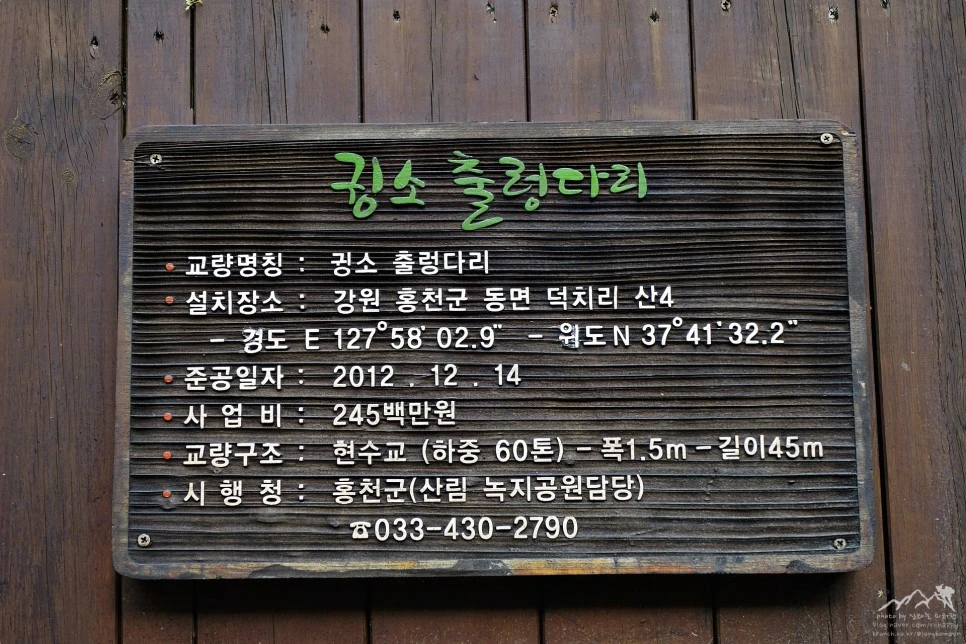 귕소 출렁다리
• 교량명칭 : 귕소 출렁다리
• 설치장소 : 강원 홍천군 동면 덕치리 산4
- 경도 E 127°58′ 02.9″ - 위도 N 37°41′32.2″
• 준공일자 : 2012 . 12 . 14
• 사 업 비 : 245백만원
• 교량구조 : 현수교 (하중 60톤) - 폭1.5m - 길이45m
• 시 행 청 : 홍천군(산림 녹지공원담당)
☎033-430-2790
photo by